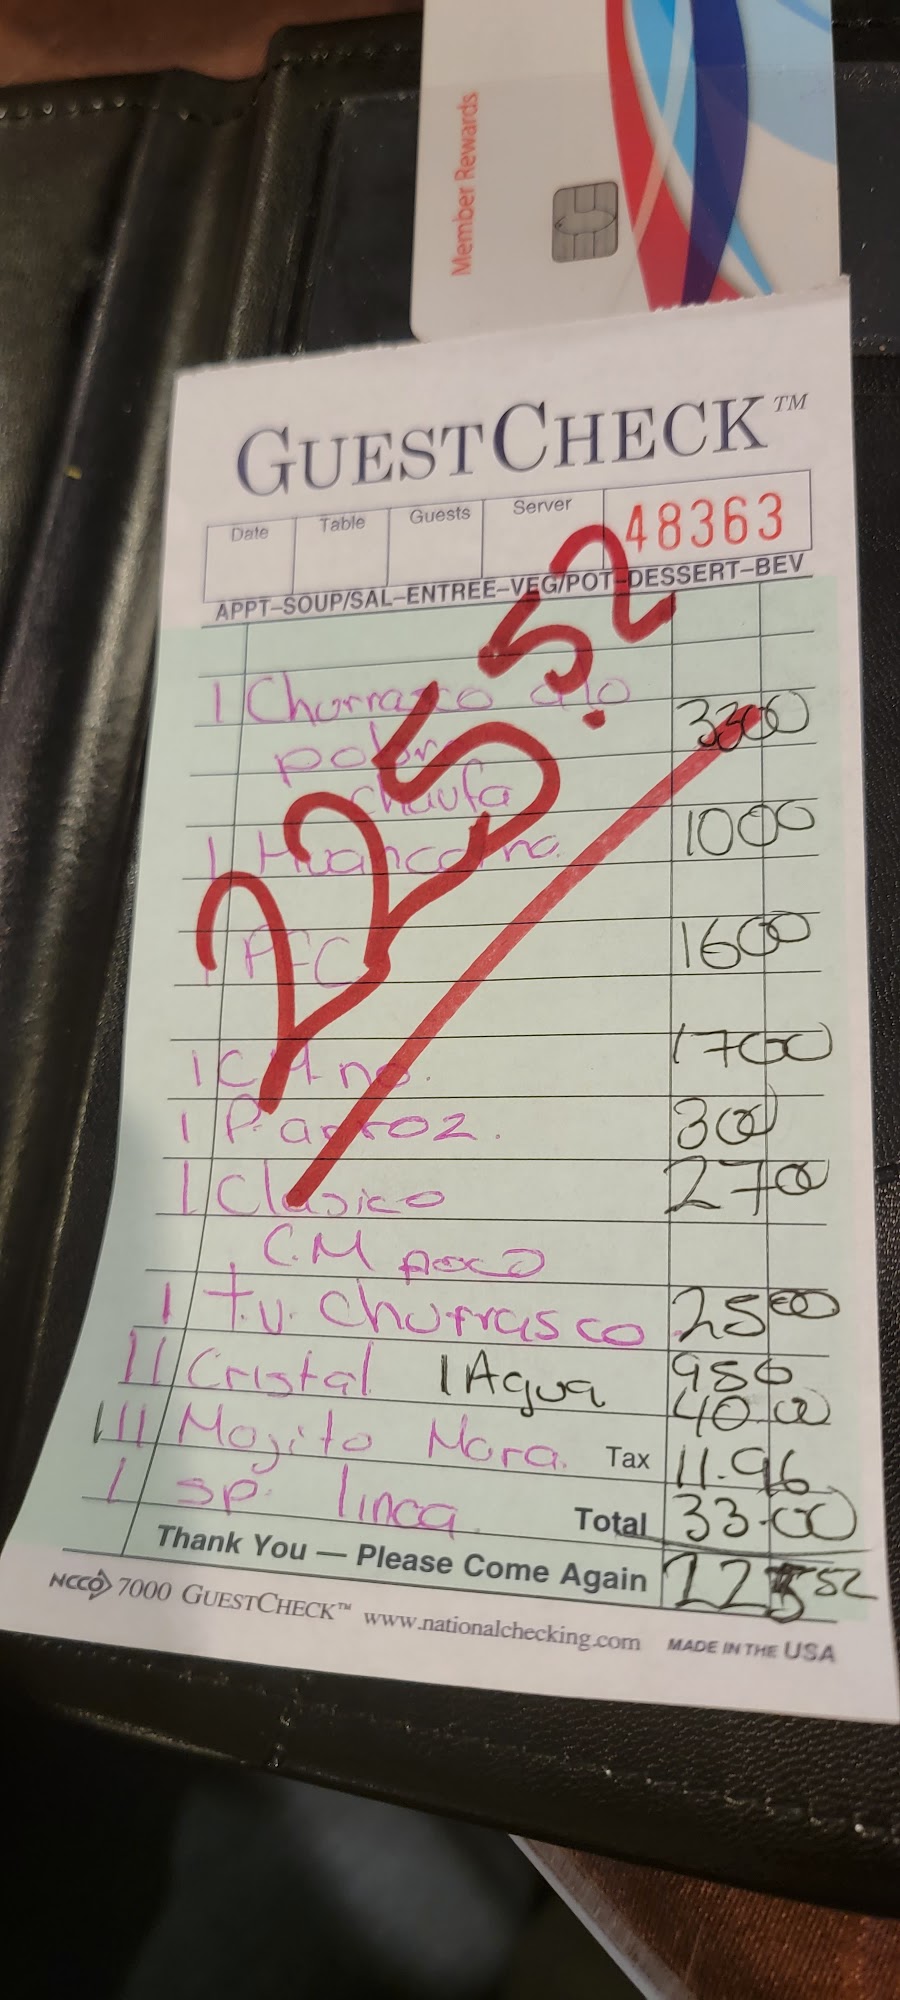 Member Rewards
GUESTCHECK™
Date Table Guests Server 48363
APPT–SOUP/SAL–ENTREE–VEG/POT–DESSERT–BEV
225.52
1 Churrasco alo 3300
pobre
chaufa
1 Huancaina. 1000
1 PFC 1600
1 CH no. 1700
1 P. arroz. 300
1 Clasico 2700
C.M poco
1 t.v. Churrasco 2500
11 Cristal 1 Agua 950
111 Mojito Mora. 40.00
Tax 11.96
1 sp. linca. Total 33.00
Thank You — Please Come Again 225 52
NCCO 7000 GUESTCHECK™ www.nationalchecking.com MADE IN THE USA